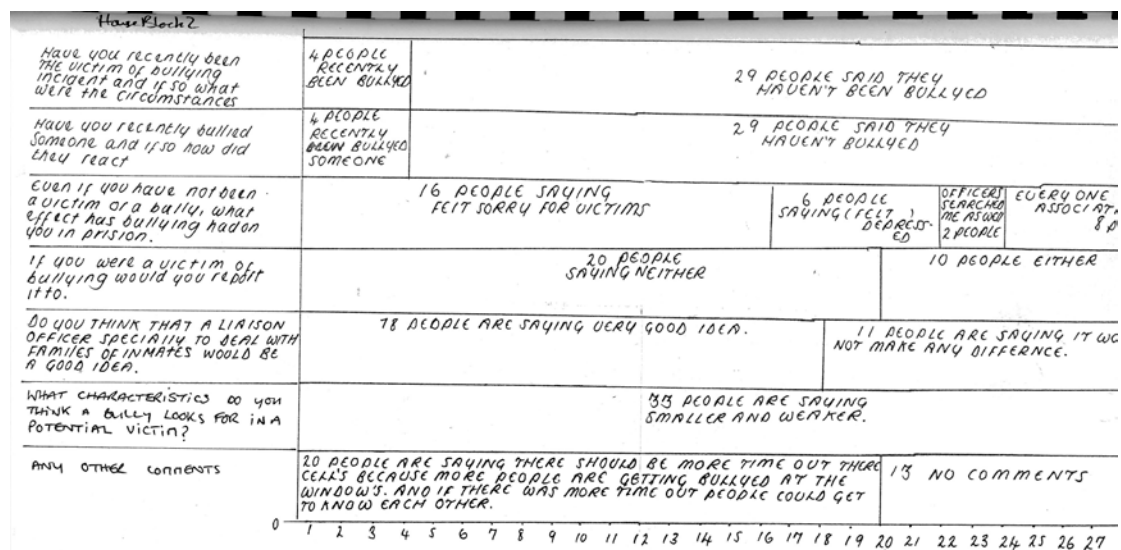 House Block 2
Have you recently been
the victim of bullying
incident and if so what
were the circumstances
4 PEOPLE
RECENTLY
BEEN BULLYED
29 PEOPLE SAID THEY
HAVEN'T BEEN BULLYED
Have you recently bullied
Someone and if so how did
they react
4 PEOPLE
RECENTLY
BULLYED
SOMEONE
29 PEOPLE SAID THEY
HAVEN'T BULLYED
Even if you have not been
a victim or a bully, what
effect has bullying had on
you in prision.
16 PEOPLE SAYING
FELT SORRY FOR VICTIMS
6 PEOPLE
SAYING (FELT )
DEPRESS-
ED
OFFICERS
SEARCHED
ME AS WELL
2 PEOPLE
EVERYONE
ASSOCIAT
8 P
If you were a victim of
bullying would you report
it to.
20 PEOPLE
SAYING NEITHER
10 PEOPLE EITHER
DO YOU THINK THAT A LIAISON
OFFICER SPECIALLY TO DEAL WITH
FAMILES OF INMATES WOULD BE
A GOOD IDEA.
18 PEOPLE ARE SAYING VERY GOOD IDEA.
11 PEOPLE ARE SAYING IT WO
NOT MAKE ANY DIFFERNCE.
WHAT CHARACTERISTICS DO YOU
THINK A BULLY LOOKS FOR IN A
POTENTIAL VICTIM?
33 PEOPLE ARE SAYING
SMALLER AND WEAKER.
ANY OTHER COMMENTS
20 PEOPLE ARE SAYING THERE SHOULD BE MORE TIME OUT THERE
CELL'S BECAUSE MORE PEOPLE ARE GETTING BULLYED AT THE
WINDOW'S. AND IF THERE WAS MORE TIME OUT PEOPLE COULD GET
TO KNOW EACH OTHER.
13 NO COMMENTS
0 1 2 3 4 5 6 7 8 9 10 11 12 13 14 15 16 17 18 19 20 21 22 23 24 25 26 27